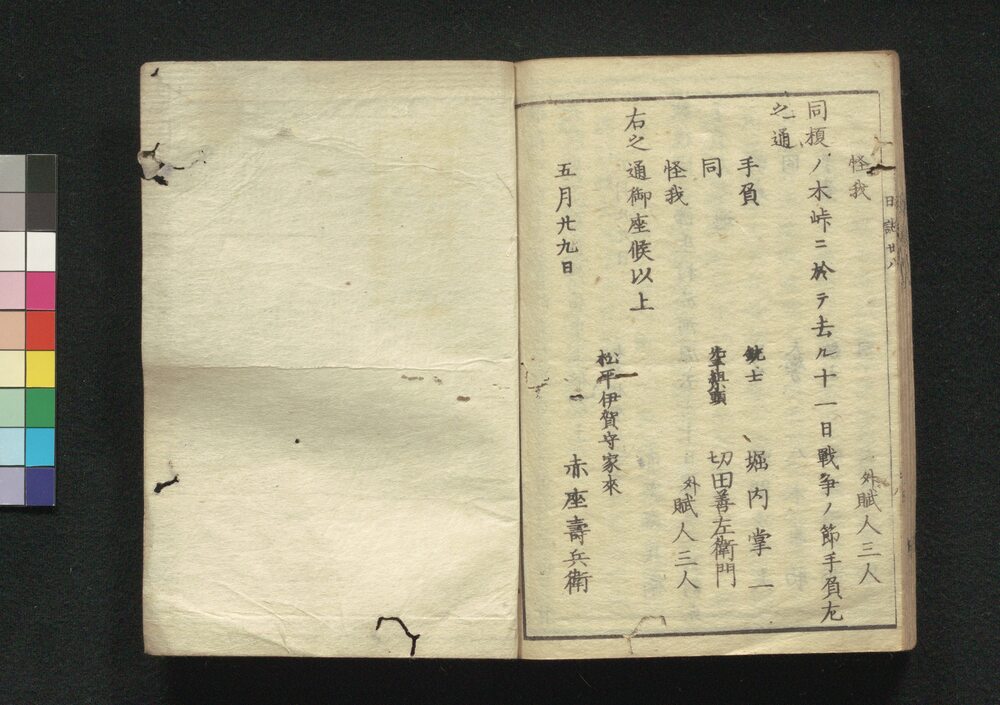 日誌廿八
怪我 外賦人三人
同榎ノ木峠ニ於テ去ル十一日戰爭ノ節手負左
之通
手負 銃士 堀内掌一
同 切田善左衛門
怪我 外賦人三人
右之通御座候以上
五月廿九日
松平伊賀守家來
赤座壽兵衛